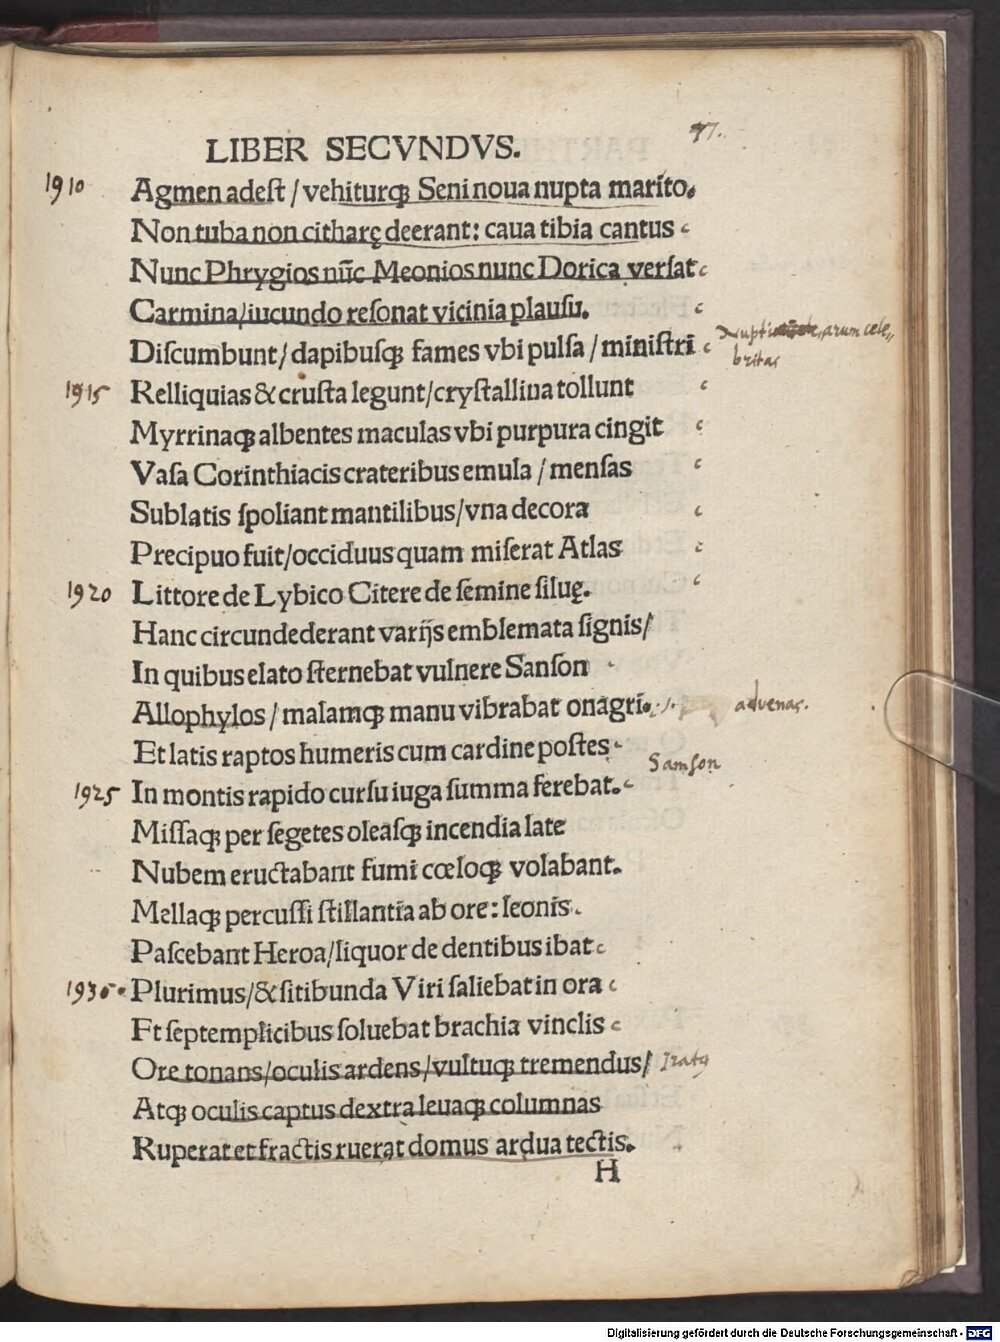 LIBER SECVNDVS. 47.
1910 Agmen adest / vehiturqꝫ Seni noua nupta marito.
Non tuba non citharę deerant: caua tibia cantus
Nunc Phrygios nūc Meonios nunc Dorica versat
Carmina/iucundo resonat vicinia plausu.
Discumbunt/dapibusqꝫ fames vbi pulsa / ministri
Nupti arum cele„
britas
1915 Relliquias & crusta legunt/crystallina tollunt
Myrrinaqꝫ albentes maculas vbi purpura cingit
Vasa Corinthiacis crateribus emula / mensas
Sublatis spoliant mantilibus/vna decora
Precipuo fuit/occiduus quam miserat Atlas
1920 Littore de Lybico Citere de semine siluę.
Hanc circundederant varijs emblemata signis/
In quibus elato sternebat vulnere Sanson
Allophylos / malamqꝫ manu vibrabat onagri. advenas.
Et latis raptos humeris cum cardine postes
Samson
1925 In montis rapido cursu iuga summa ferebat.
Missaqꝫ per segetes oleasqꝫ incendia late
Nubem eructabant fumi cœloqꝫ volabant.
Mellaqꝫ percussi stillantia ab ore: leonis
Pascebant Heroa/liquor de dentibus ibat
1930 Plurimus/& sitibunda Viri saliebat in ora
Et septemplicibus soluebat brachia vinclis
Ore tonans/oculis ardens/vultuqꝫ tremendus/ Iratꝰ
Atqꝫ oculis captus dextra leuaqꝫ columnas
Ruperat et fractis ruerat domus ardua tectis.
H
Digitalisierung gefördert durch die Deutsche Forschungsgemeinschaft - DFG